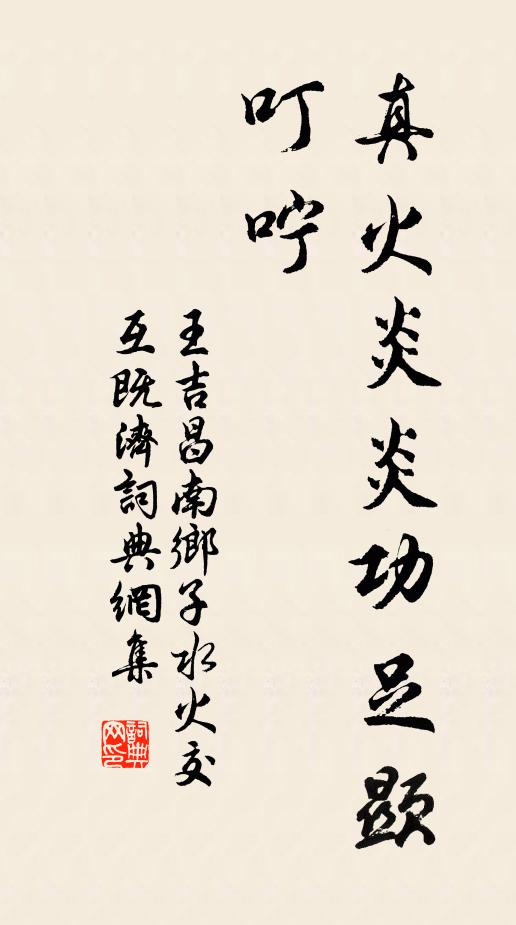 真火炎炎功足顯
叮咛
王吉昌南鄉子水火交
互既濟詞典網集
詞典
网印